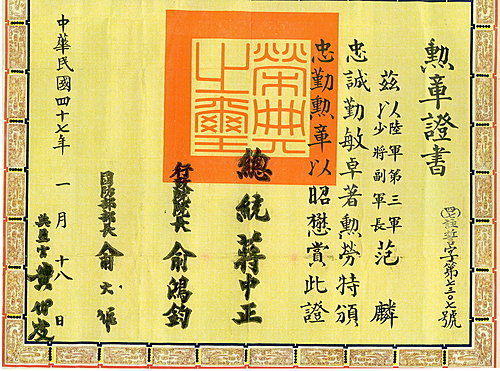 勲章證書
茲以陸軍第三軍
少將副軍長范麟
忠誠勤敏卓著勲勞特頒
忠勤勲章以昭懋賞此證
榮典之璽
總統蔣中正
行政院院長俞鴻鈞
國防部部長俞大維
中華民國四十七年一月十八日
字第七三〇七號